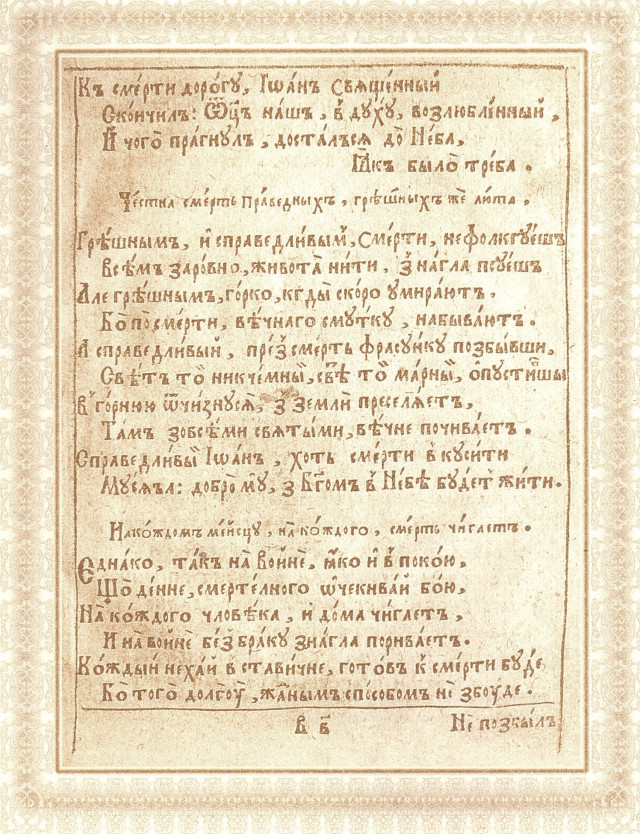 Къ сме́рти доро́гу, Іѡа́нъ свяще́нный
Ско́нчилъ: Ѿц҃ъ на́шъ, в̾ ду́ху, возлю́бленный,
И҆ чого̀ пра́гнулъ, доста́лъся до̀ Не́ба,
Та́къ было̀ тре́ба.
Че́стна сме́рть пра́ведныхъ, грѣ́шныхъ жѐ лю́та.
Грѣ́шнымъ, и҆ справедли́вым̾, Сме́рти, не фолкгу́ешъ
Всѣ́мъ заро́вно, живота̀ ни́ти, з̾ на́гла псуе́шъ
Але грѣ́шнымъ, го́рко, кгды̀ ско́ро умира́ютъ,
Бо̀ по сме́рти, вѣ́чнаго сму́тку, набыва́ютъ.
А справедли́вый, пре́з̾ сме́рть фрасу́нку позбы́вши,
Свѣ́тъ то̀ никче́мный, свѣ̀ то̀ ма́рный, ѻ҆пусти́вшы
В̾ го́рнюю ѿчи́зну ся̀, з̾ землѝ преселя́етъ,
Та́мъ зо всѣ́ми святы́ми, вѣ́чне почива́етъ.
Справедли́вый Іѡа́нъ, хо́ть сме́рти в̾куси́ти
Му́сяълъ: добро̀ му, з̾ Бг҃омъ в̾ Не́бѣ бу́дет̾ жи́ти.
На ко́ждомъ ме́йсцу, на̀ ко́ждого, сме́рть чига́етъ.
Є҆дна́ко, та́къ на̀ войнѣ̀, ꙗ҆́ко и҆ в̾ поко́ю,
Що̀ де́нне, сме́ртелного ѡ҆чекива́й бо́ю,
На̀ ко́ждого чловѣ́ка, и҆ до́ма чига́етъ,
И на̀ войнѣ̀ бе́з̾ бра́ку зна́гла порива́етъ.
Ко́ждый неха́й вставичне, гото́въ к̾ сме́рти бу́де
Бо̀ того̀ долго́у, жа́днымъ спо́собомъ нѐ збу́де.
В в҃
Нѐ позбы́лъ